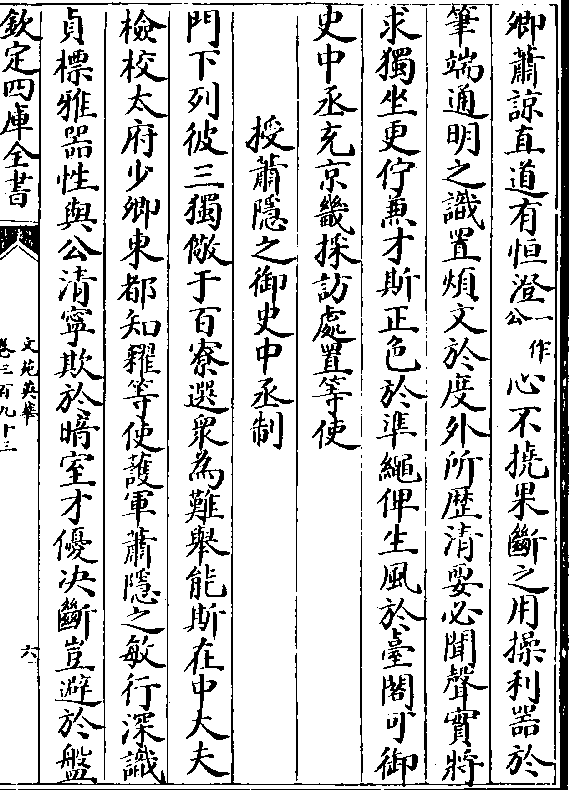 卿蕭諒直道有恒澄一作公心不撓果斷之用操利器於
筆端通明之識置煩文於度外所歷清要必聞聲實將
求獨坐更佇兼才斯正色於準繩俾生風於臺閣可御
史中丞充京畿採訪處置等使
授蕭隱之御史中丞制
門下列彼三獨儆于百寮選衆為難舉能斯在中大夫
檢校太府少卿東都知糴等使護軍蕭隱之敏行深識
貞標雅器性與公清寧欺於暗室才優决斷豈避於盤
欽定四庫全書
文苑英華
卷三百九十三
六